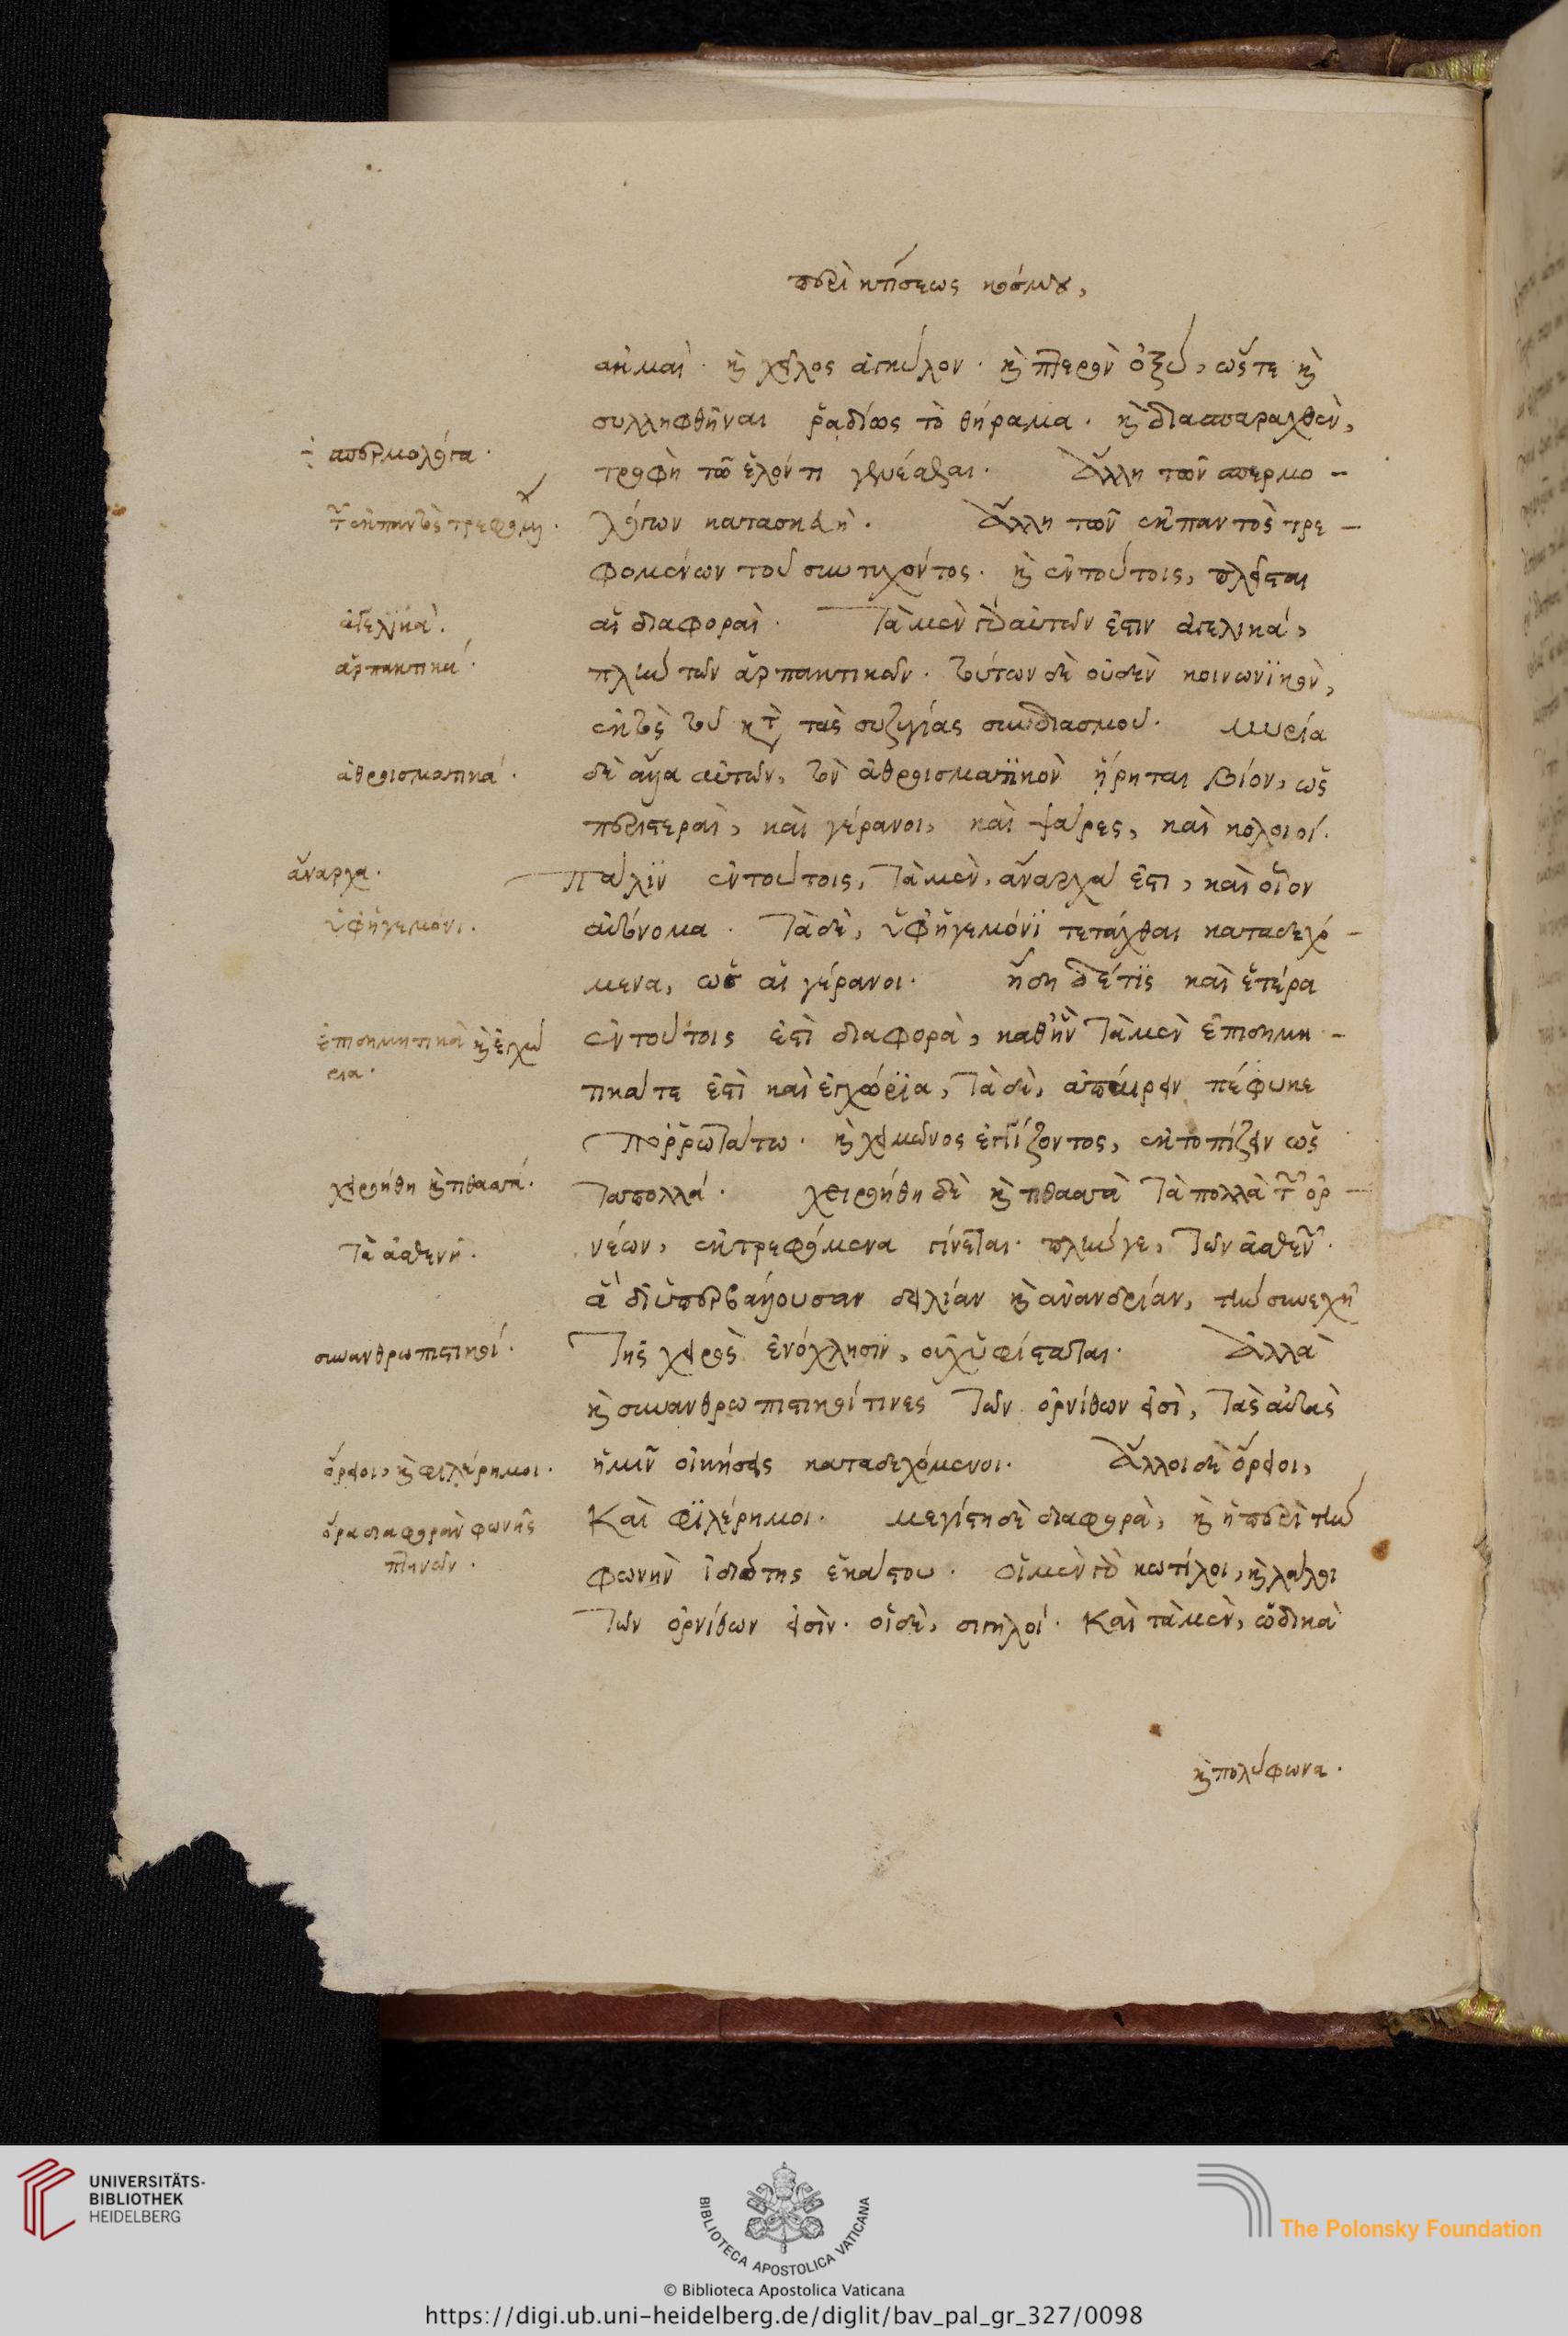 περὶ κτίσεως κόσμου,
ἀκμαὶ· καὶ χεῖλος ἀγκύλον· καὶ πτερὸν ὀξὺ, ὥστε καὶ
συλληφθῆναι ῥᾳδίως τὸ θήραμα· καὶ διασπαραχθὲν,
σπερμολόγα·
τροφὴ τῷ ἑλόντι γενέσθαι· Ἄλλη τῶν σπερμο-
τῶν ἐκ παντὸς τρεφομένων·
λόγων κατασκευὴ· Ἄλλη τῶν ἐκ παντὸς τρε-
φομένων τοῦ συντυχόντος· καὶ ἐν τούτοις, πλεῖσται
ἀγελικὰ·
αἱ διαφοραὶ· Τὰ μὲν γὰρ αὐτῶν ἐστιν ἀγελικὰ,
ἁρπακτικά·
πλὴν τῶν ἁρπακτικῶν· τούτων δὲ οὐδὲν κοινωνϊκὸν,
ἐκτὸς τοῦ κατὰ τὰς συζυγίας συνδυασμοῦ· μυρία
ἀθροισματικά·
δὲ ἄλλα αὐτῶν, τὸν ἀθροισματϊκὸν ᾕρηται βίον, ὡς
περιστεραὶ, καὶ γέρανοι, καὶ ψᾶρες, καὶ κολοιοί·
ἄναρχα·
Πάλϊν ἐν τούτοις, τὰ μὲν, ἄναρχά ἐστι, καὶ οἷον
ὑφ' ἡγεμόνι·
αὐτόνομα· Τὰ δὲ, ὑφ' ἡγεμόνϊ τετάχθαι καταδεχό-
μενα, ὡς αἱ γέρανοι· ἤδη δέ τϊς καὶ ἑτέρα
ἐπιδημητικὰ καὶ ἐγχώ
ρια·
ἐν τούτοις ἐστὶ διαφορὰ, καθ' ἣν τὰ μὲν ἐπιδημη-
τικά τε ἐστὶ καὶ ἐγχώρϊα, τὰ δὲ, ἀπαίρειν πέφυκε
πορρωτάτω· καὶ χειμῶνος ἐγγίζοντος, ἐκτοπίζειν ὡς
χειροήθη καὶ τιθασσά·
τὰ πολλά· χειροήθη δὲ καὶ τιθασσὰ τὰ πολλὰ τῶν ὀρ-
τὰ ἀσθενῆ·
νέων, ἐκτρεφόμενα γίνεται· πλήν γε, τῶν ἀσθενῶν·
ἃ δι' ὑπερβάλλουσαν δειλίαν καὶ ἀνανδρίαν, τὴν συνεχῆ
συνανθρωπιστικοί·
τῆς χειρὸς ἐνόχλησϊν, οὐχ ὑφίσταται· Ἀλλὰ
καὶ συνανθρωπιστικοί τινες τῶν ὀρνίθων εἰσὶ, τὰς αὐτὰς
ὄρειοι, καὶ φιλέρημοι·
ἡμῖν οἰκήσεις καταδεχόμενοι· Ἄλλοι δὲ ὄρειοι,
ὅρα διαφορὰν φωνῆς
πτηνῶν·
Καὶ φϊλέρημοι· μεγίστη δὲ διαφορὰ, καὶ ἡ περὶ τὴν
φωνὴν ἰδιότης ἑκάστου· οἱ μὲν γὰρ κωτίλοι, καὶ λάλοι
τῶν ὀρνίθων εἰσὶν· οἱ δὲ, σιγηλοί· Καὶ τὰ μὲν, ᾠδικὰ
καὶ πολύφωνα·
UNIVERSITÄTS-
BIBLIOTHEK
HEIDELBERG
BIBLIOTECA APOSTOLICA VATICANA
The Polonsky Foundation
© Biblioteca Apostolica Vaticana
https://digi.ub.uni-heidelberg.de/diglit/bav_pal_gr_327/0098